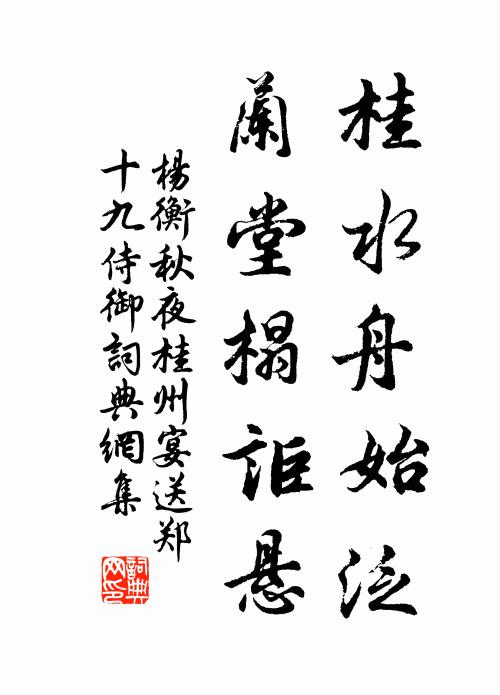 桂水舟始泛
蘭堂榻詎懸
楊衡秋夜桂州宴送郑
十九侍御詞典網集
詞典网印